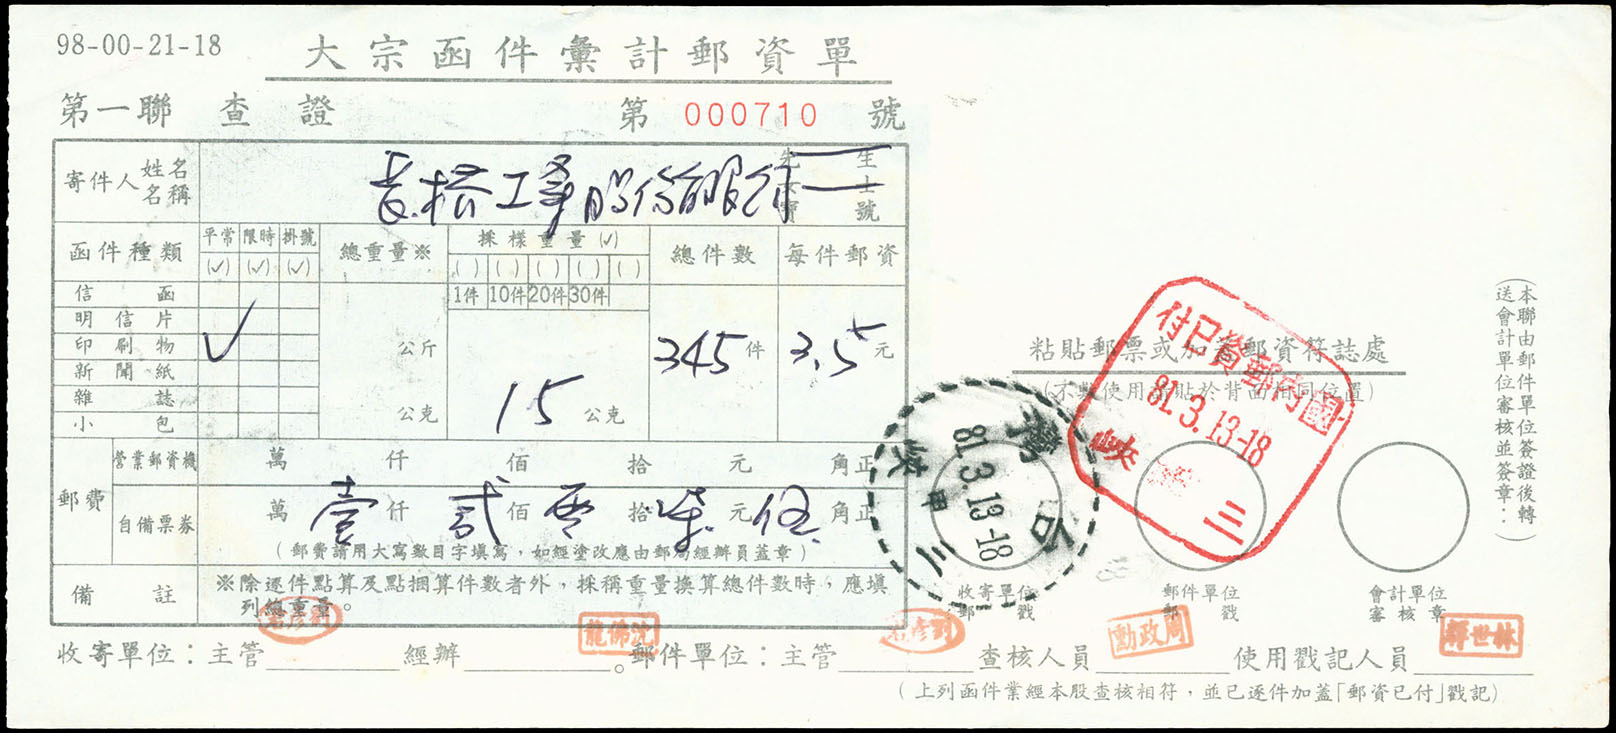 98-00-21-18
大宗函件彙計郵資單
第一聯 查證 第 000710 號
寄件人 姓名 名稱
長 工 股份有限公 先生 女士 寶號
函件種類 平常 限時 掛號 總重量※ 採樣重量(√) 總件數 每件郵資
(√) (√) (√) ( ) ( ) ( ) ( ) ( )
1件 10件 20件 30件
信函
明信片
印刷物 √ 公斤 345件 3.5元
新聞紙
雜誌 公克 15 公克
小包
郵費 營業郵資機 萬 仟 佰 拾 元 角正
自備票券 萬 壹 仟 貳 佰 零 拾 柒 元 伍 角正
(郵費請用大寫數目字填寫，如經塗改應由郵局經辦員蓋章)
備註 ※除逐件點算及點捆算件數者外，採稱重量換算總件數時，應填
列總重量。
粘貼郵票或加蓋郵資符誌處
(不敷使用請貼於背面相同位置)
國內郵資已付
81.3.13-18
三峽
台灣
81.3.13-18
三峽
甲
收寄單位郵戳
郵件單位郵戳
會計單位審核章
(本聯由郵件單位簽證後轉
送會計單位審核並簽章：)
收寄單位：主管 經辦 。郵件單位：主管 查核人員 使用戳記人員
劉彥君
沈佛龍
劉彥君
周政勳
林世輝
(上列函件業經本股查核相符，並已逐件加蓋「郵資已付」戳記)